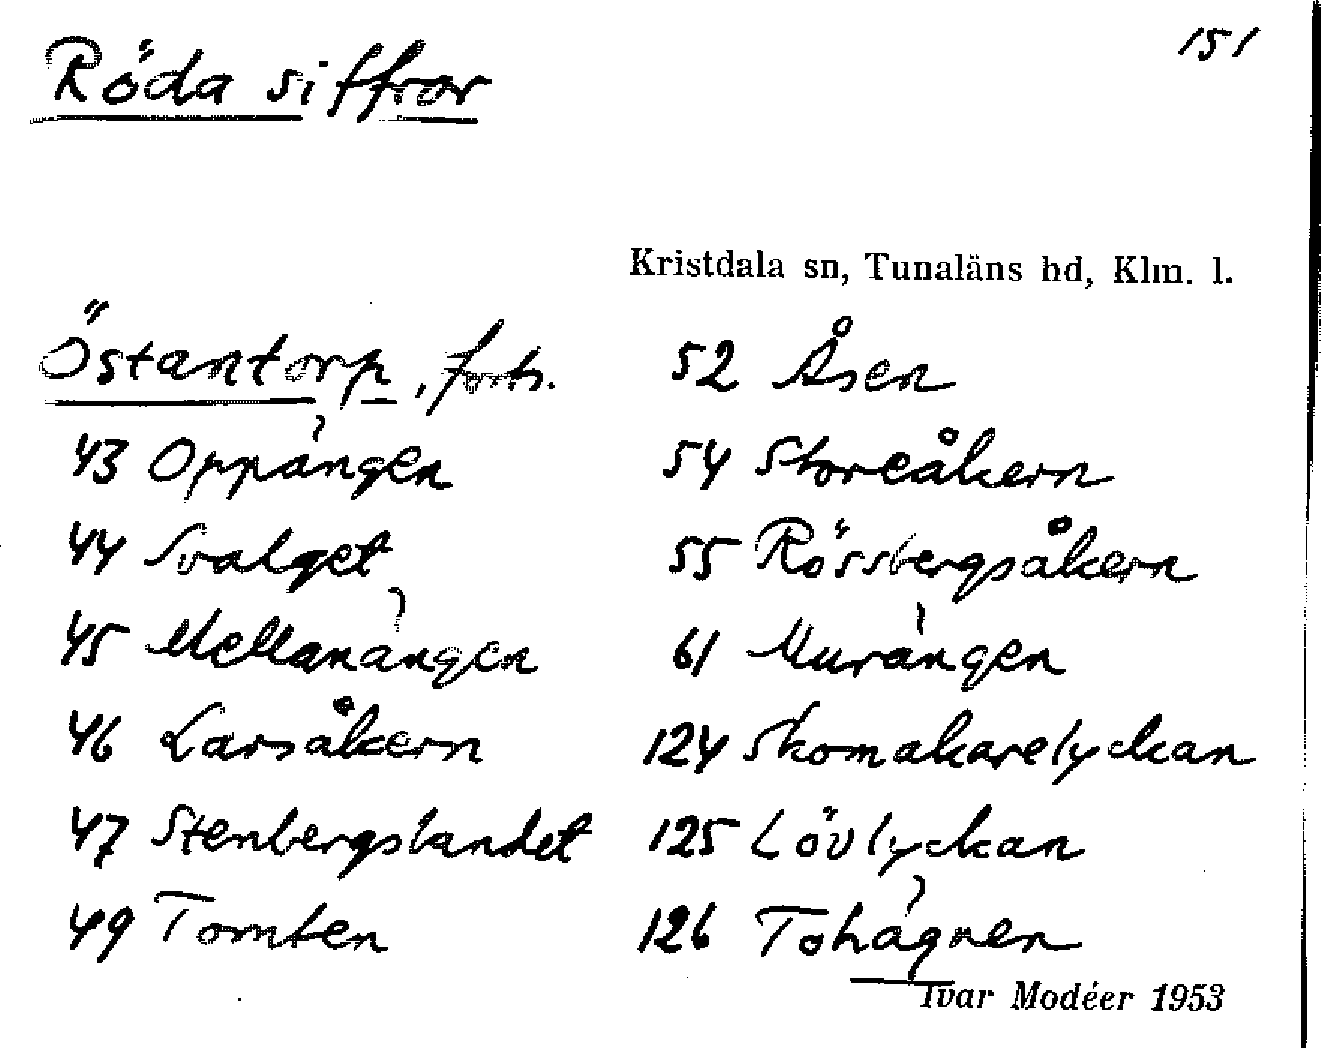 151
Röda siffror
Kristdala sn, Tunaläns hd, Klm. l.
Östantorp, forts.
43 Oppängen
44 Svalget
45 Mellanängen
46 Larsåkern
47 Stenbergslandet
49 Tomten
52 Åsen
54 Storeåkern
55 Rössbergsåkern
61 Murängen
124 Skomakarelyckan
125 Lövlyckan
126 Tohagnen
Ivar Modéer 1953